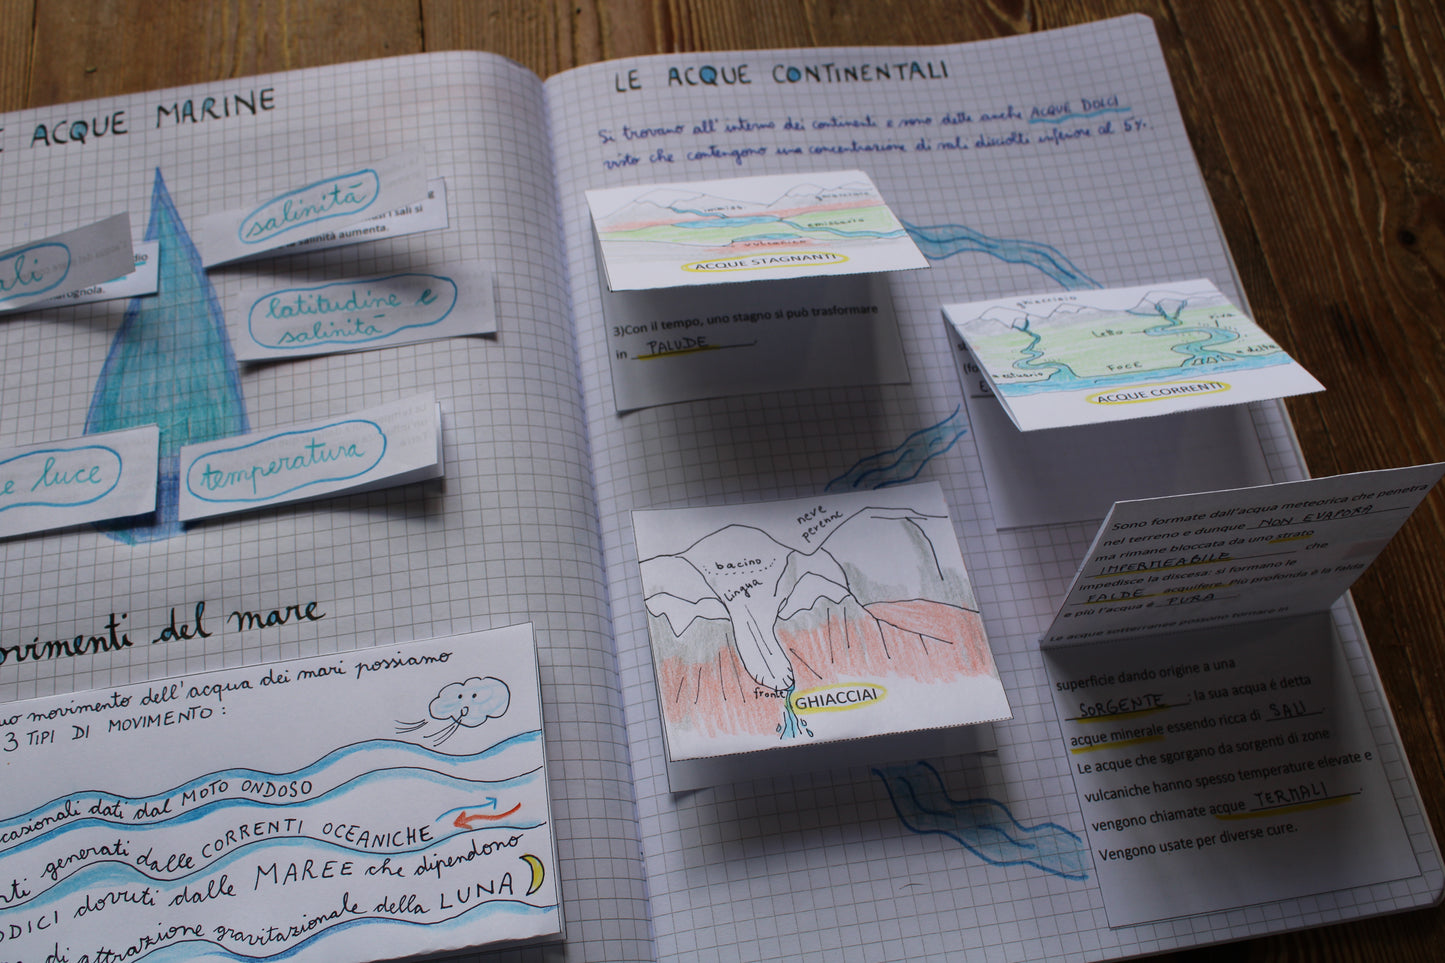 ACQUE MARINE
salinità
i sali si
a salinità aumenta.
ali
dio
marognola.
latitudine e
salinità
e luce
temperatura
ovimenti del mare
uo movimento dell'acqua dei mari possiamo
3 TIPI DI MOVIMENTO:
casionali dati dal MOTO ONDOSO
nti generati dalle CORRENTI OCEANICHE
ODICI dovuti dalle MAREE che dipendono
di attrazione gravitazionale della LUNA
LE ACQUE CONTINENTALI
Si trovano all'interno dei continenti e sono dette anche ACQUE DOLCI
visto che contengono una concentrazione di sali disciolti inferiore al 5%.
ghiacciaio
emissario
vulcanico
ACQUE STAGNANTI
3)Con il tempo, uno stagno si può trasformare
in PALUDE.
ghiacciaio
Letto
riva
a estuario
FOCE
a delta
ACQUE CORRENTI
neve
perenne
bacino
lingua
fronte
GHIACCIAI
Sono formate dall'acqua meteorica che penetra
nel terreno e dunque NON EVAPORA
ma rimane bloccata da uno strato
IMPERMEABILE che
impedisce la discesa: si formano le
FALDE acquifere. Più profonda è la falda
e più l'acqua è PURA.
Le acque sotterranee possono tornare in
superficie dando origine a una
SORGENTE: la sua acqua é detta
acque minerale essendo ricca di SALI.
Le acque che sgorgano da sorgenti di zone
vulcaniche hanno spesso temperature elevate e
vengono chiamate acque TERMALI.
Vengono usate per diverse cure.